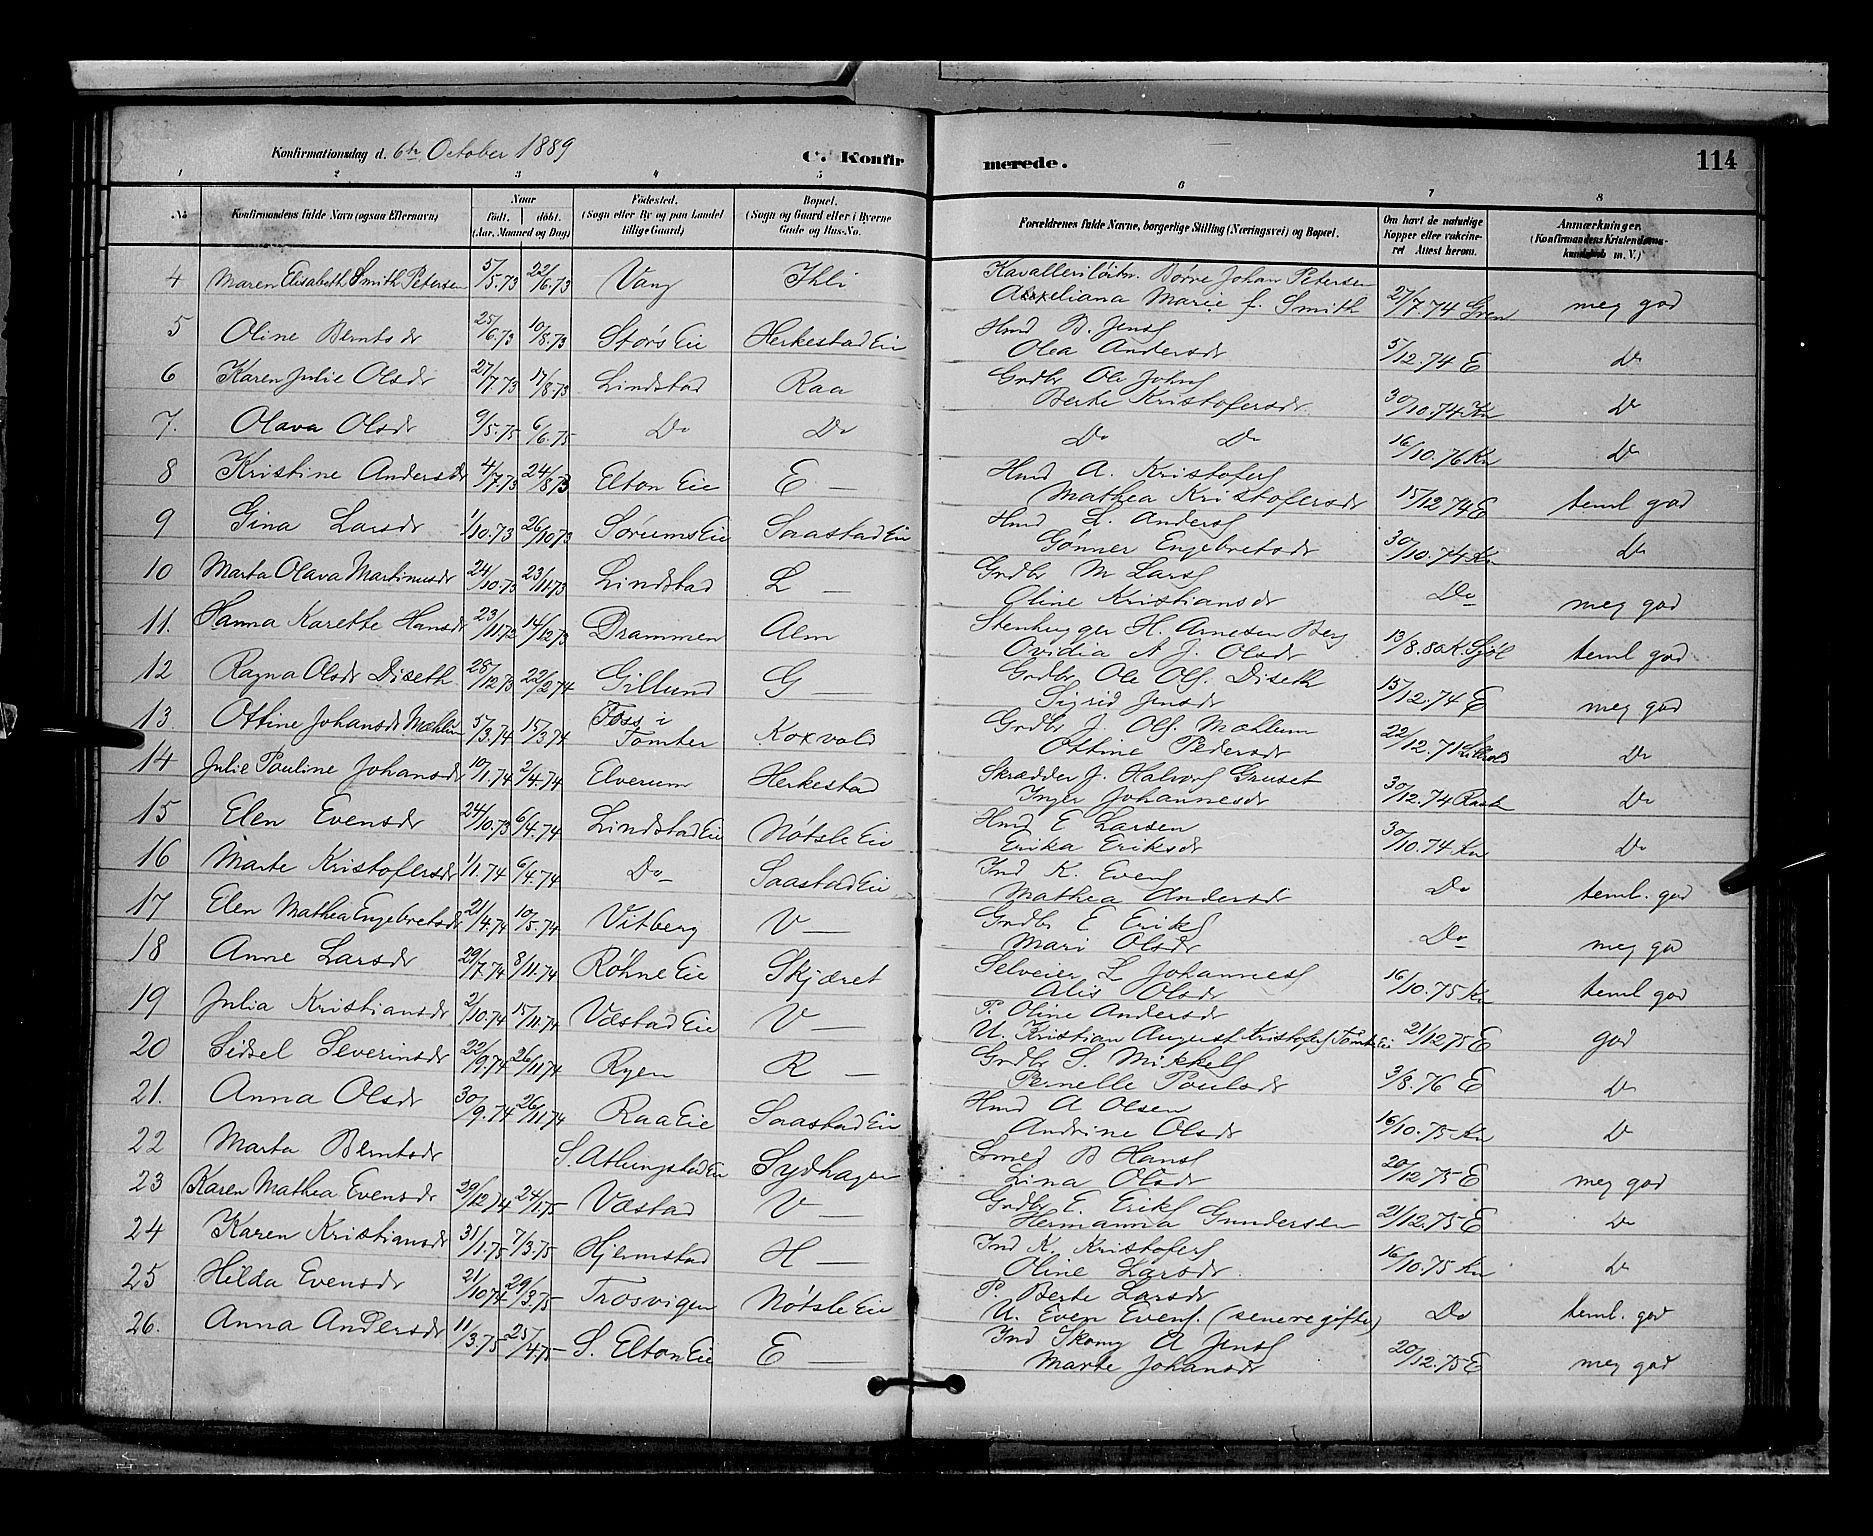 Konfirmationsdag d. 6te October 1889
C. Konfirmerede.
114
1 2 3 4 5 6 7 8
No
Konfirmandens fulde Navn (ogsaa Efternavn)
Naar født. døbt. (Aar, Maaned og Dag)
Fødested. (Sogn eller By og paa Landet tillige Gaard)
Bopæl. (Sogn og Gaard eller i Byerne Gade og Hus-No.
Forældrenes fulde Navne, borgerlige Stilling (Næringsvei) og Bopæl.
Om havt de naturlige Kopper eller vakcineret Attest herom.
Anmærkninger. (Konfirmandens Kristendomskundskab m. V.)
4 Maren Elisabeth Smith Petersen 5/5.73 22/6.73 Vang Ihli Kavalleriløitn. Børre Johan Petersen
Marie f. Smith 27/7.74 Gren meg god
5 Oline Berntsdr 25/6.73 10/8.73 Størs Eie Herkestad Eie Hmd B. Jensf
Olea Andersdr 5/12.74 E Do
6 Karen Julie Olsdr 27/7.73 17/8.73 Lindstad Raa Grdbr Ole Johnsf
Berte Kristofersdr 30/10.74 Kn Do
7. Olava Olsdr 9/5.75 6/6.75 Do Do Do Do 16/10.76 Kn Do
8 Kristine Andersdr 4/7.73 24/8.73 Elton Eie E — Hmd A. Kristofersf
Mathea Kristofersdr 15/12 74 E teml god
9 Gina Larsdr 1/10.73 26/10.73 Sørums Eie Saastad Eie Hmd L. Andersf
Gønner Engebretsdr 30/10.74 Kn Do
10 Marta Olava Martinusdr 24/10.73 23/11.73 Lindstad L — Grdbr M Larsf
Oline Kristiansdr Do meg god
11. Hanna Karette Hansdr 23/11.73 14/12.73 Drammen Alm Stenhugger H. Arnesen Berg
Ovidia A J. Olsdr 13/8.80 teml god
12 Ragna Olsdr Diseth 28/12.73 22/2.74 Gillund G — Grdbr Ole Olsf. Diseth
Sigrid Jensdr 15/12.74 E meg god
13. Ottine Johansdr Mæhlum 5/3.74 15/3.74 Foss i Tomter Koxvold Grdbr J. Olsf. Mæhlum
Ottine Pedersdr 22/12.71 Do
14 Julie Pauline Johansdr 10/1.74 2/4.74 Elverum Herkestad Skrædder J. Halvorsf Gruset
Inger Johannesdr 30/12.74 Do
15 Elen Evensdr 24/10.73 6/4.74 Lindstad Eie Nøtsle Eie Hmd E Larsen
Erika Eriksdr 30/10.74 Kn Do
16 Marte Kristofersdr 1/1.74 6/4.74 Do Saastad Eie Ind K. Evensf
Mathea Andersdr Do teml. god
17 Elen Mathea Engebretsdr 21/4.74 10/5.74 Vitberg V — Grdbr E Eriksf
Mari Olsdr Do meg god
18 Anne Larsdr 29/7.74 8/11.74 Røhne Eie Skjæret Selveier L Johannesf
Alis Olsdr 16/10.75 Kn teml god
19 Julia Kristiansdr 2/10.74 15/11.74 Væstad Eie V — P. Oline Andersdr
U. Kristian August Kristofersf Tomter Eie 21/12.75 E god
20 Sidsel Severinsdr 22/9.74 26/11.74 Ryen R — Grdbr S. Mikkelsf
Pernelle Poulsdr 3/8.76 E Do
21. Anna Olsdr 30/9.74 26/11.74 Raa Eie Saastad Eie Hmd A Olsen
Andrine Olsdr 16/10.75 Kn Do
22 Marta Berntsdr S. Atlungstad Eie Sydhagen Smed B Hansf
Lina Olsdr 20/12.75 E meg god
23 Karen Mathea Evensdr 29/12.74 24/1.75 Væstad V — Grdbr E. Eriksf
Hermanna Gundersen 21/12.75 E Do
24 Karen Kristiansdr 31/1.75 7/3.75 Hjemstad H — Ind K. Kristofersf
Oline Larsdr. 16/10.75 Kn Do
25 Hilda Evensdr 21/10.74 29/3.75 Trosvigen Nøtsle Eie P. Berte Larsdr
U. Even Evensf. (senere gifte) Do teml. god
26. Anna Andersdr 11/3.75 25/4.75 S. Elton Eie E — Ind Skomg A Jensf
Marte Johansdr 20/12.75 E meg god